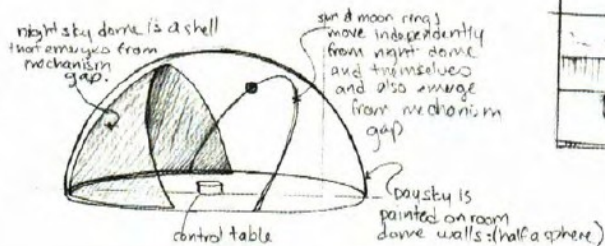 night sky dome is a shell
that emerges from
mechanism
gap.
sun & moon rings
move independently
from night dome
and themselves
and also emerge
from mechanism
gap
control table
Day sky is
painted on room
dome walls: (half a sphere)